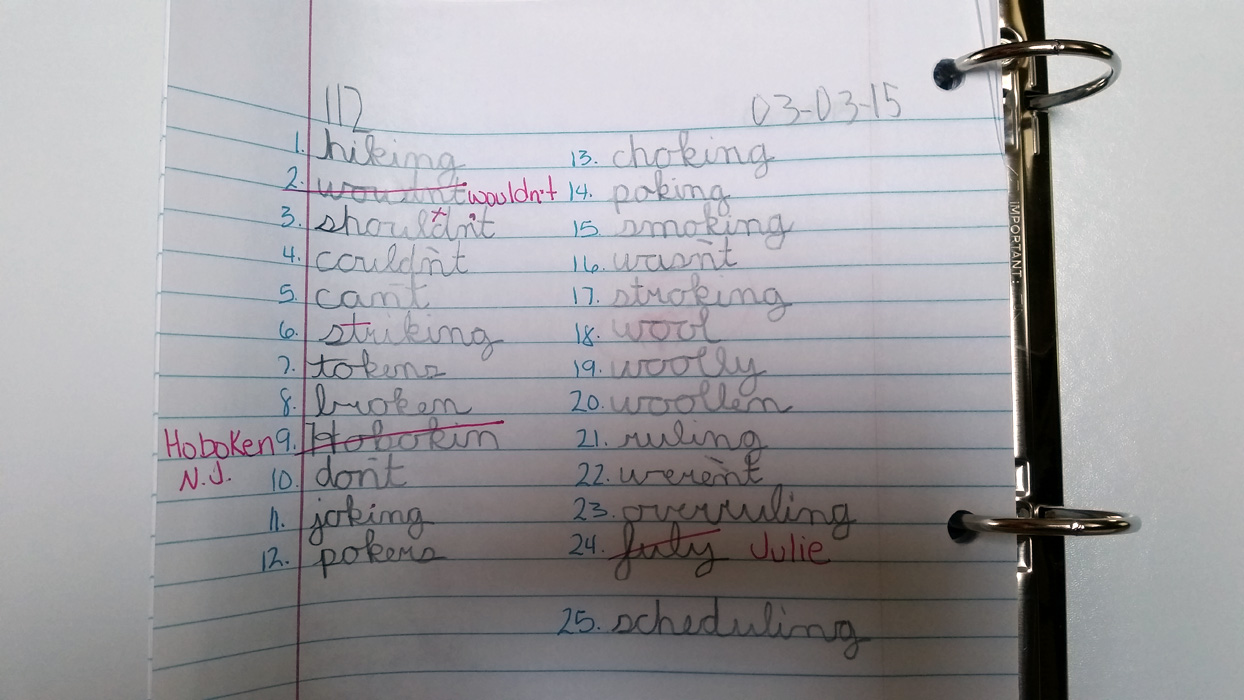 112 03-03-15
1. hiking
2. wouldnt wouldn't
3. shouldn't
4. couldn't
5. can't
6. striking
7. tokens
8. broken
Hoboken 9. Hobokin
N.J. 10. don't
11. joking
12. pokers
13. choking
14. poking
15. smoking
16. wasn't
17. stroking
18. wool
19. woolly
20. woollen
21. ruling
22. weren't
23. overruling
24. July Julie
25. scheduling
IMPORTANT: